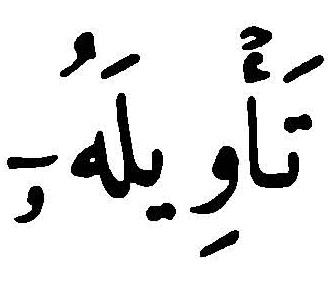 تَأۡوِيلَهُۥٓ